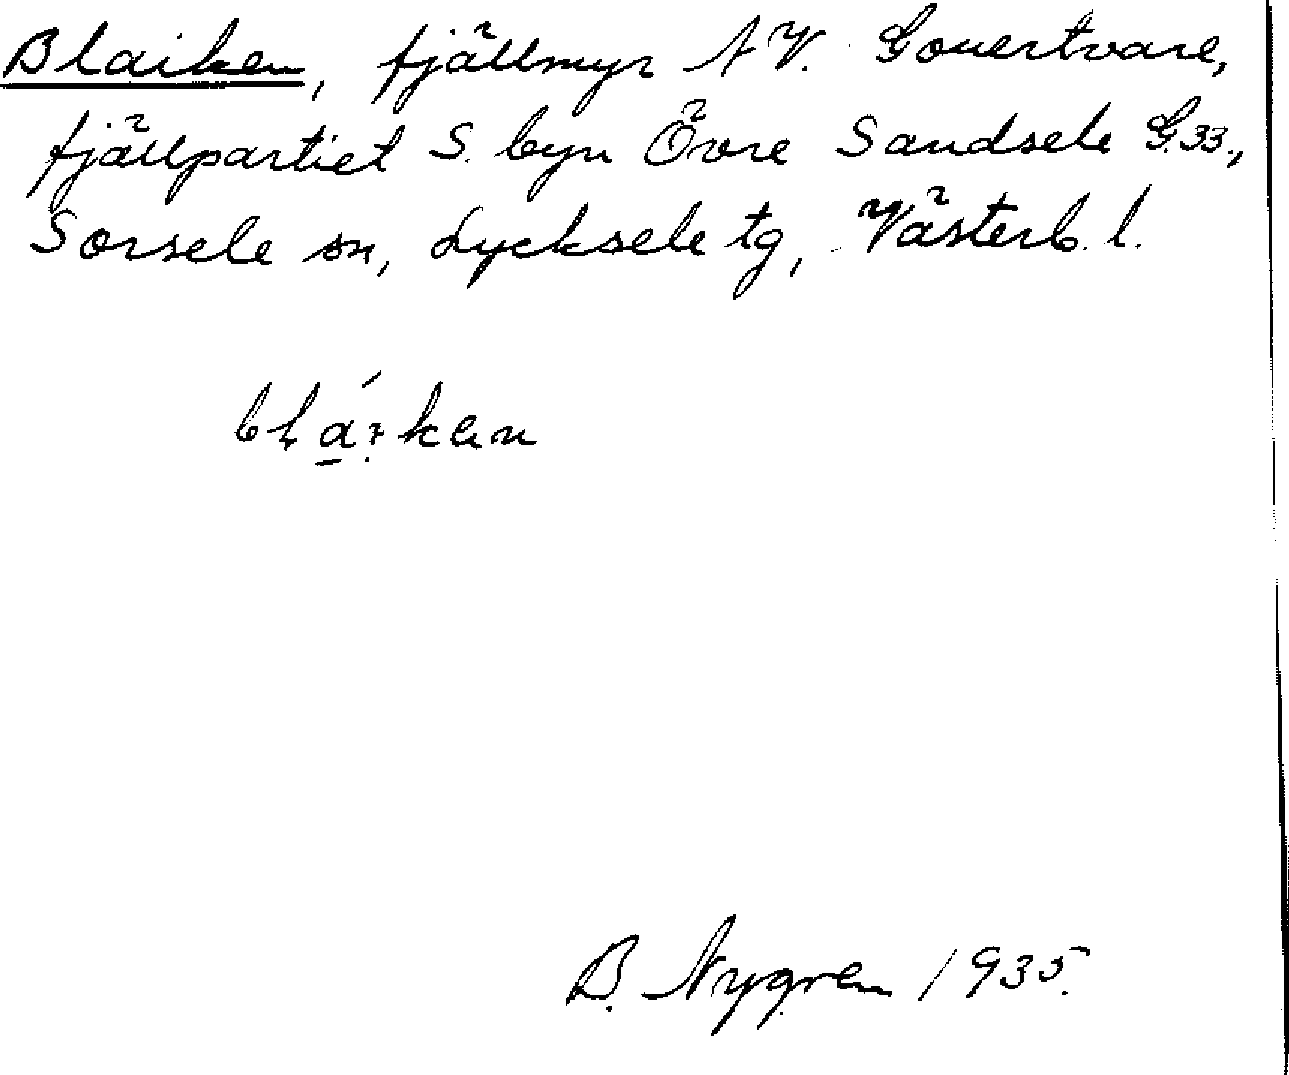 Blaiken, fjällmyr NV. Gouertvare,
fjällpartiet S. byn Övre Sandsele G.33.,
Sorsele sn, Lycksele tg, Västerb. l.
B. Nygren 1935.